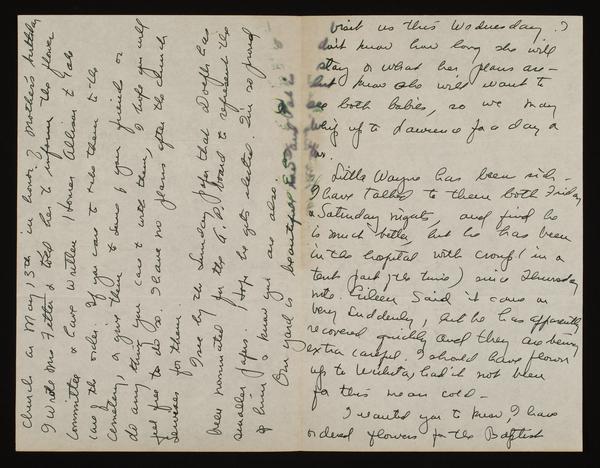 visit us this Wednesday. I
don't know how long she will
stay or what her plans are —
but know she will want to
see both babies, so we may
whip up to Lawrence for a day or
so.
Little Wayne has been sick —
I have talked to them both Friday
& Saturday nights, and find he
is much better, but he has been
in the hospital with croup (in a
tent part of the time) since Thursday
nite. Eileen said it came on
very suddenly, but he has apparently
recovered quickly and they are being
extra careful. I should have flown
up to Wichita, had it not been
for this mean cold —
I wanted you to know, I have
ordered flowers for the Baptist
Church on May 13th in honor of Mother's birthday
I wrote Mrs. & told her to inform the flower
Committee & have written Homer Allison to take
care of the order. If you care to take them to the
Cemetery, or give them to some of your friends or
do anything you care to with them, I hope you will
feel free to do so. I have no plans after the church
services for them.
I see by the Sunday paper that Dolph has
been nominated for the A.P. board to represent the
smaller papers. Hope he gets elected. I'm so proud
of him & know you are also.
Our yard is beautiful